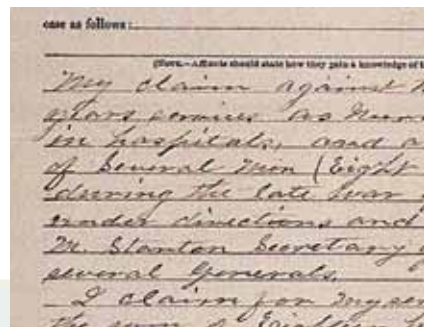 case as follows:
(NOTE.—Affiants should state how they gain a knowledge of
My claim against
years services as Nurse
in hospitals, and
of Several Men (Eight
during the late war
under directions and
M. Stanton Secretary
several Generals.
I claim for myself
the sum of Eighteen